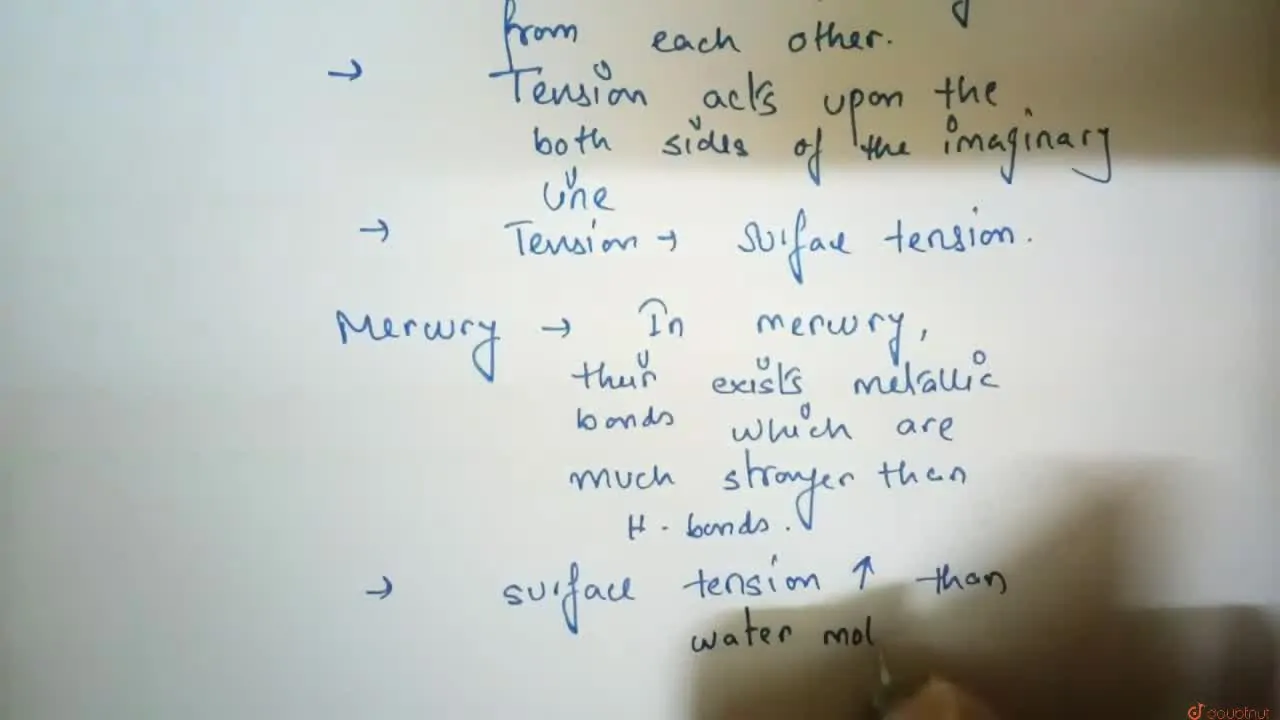 from each other.
→ Tension acts upon the
both sides of the imaginary
line
→ Tension → surface tension.
Mercury → In mercury,
their exists metallic
bonds which are
much stronger than
H-bonds.
→ surface tension ↑ than
water mol
doubtnut